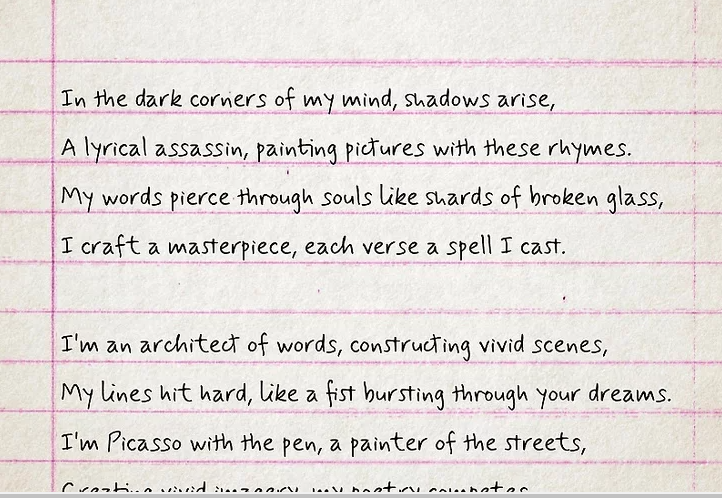 In the dark corners of my mind, shadows arise,
A lyrical assassin, painting pictures with these rhymes.
My words pierce through souls like shards of broken glass,
I craft a masterpiece, each verse a spell I cast.
I'm an architect of words, constructing vivid scenes,
My lines hit hard, like a fist bursting through your dreams.
I'm Picasso with the pen, a painter of the streets,
Creating vivid imagery, my poetry competes